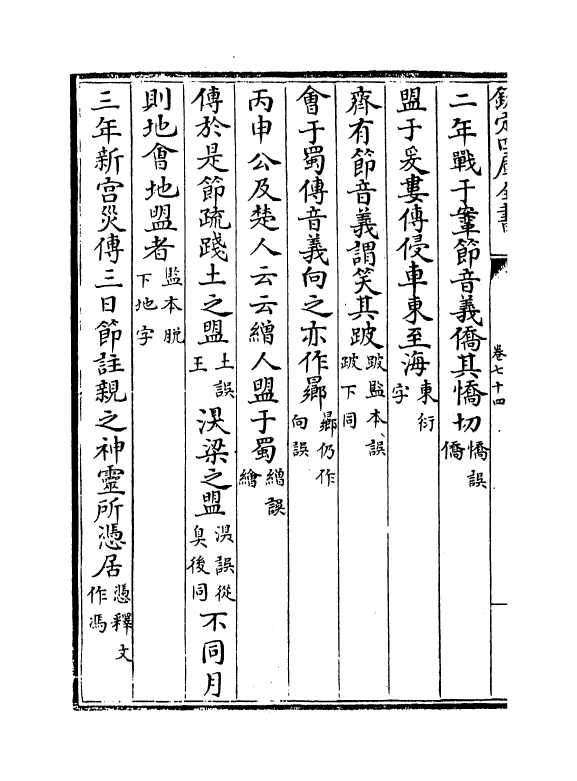 欽定四庫全書
卷七十四
二年戰于鞌節音義僑其憍切憍誤僑
盟于爰婁傳侵車東至海東衍字
齊有節音義謂笑其跛跛監本誤䟦下同
會于蜀傳音義向之亦作曏曏仍作向誤
丙申公及楚人云云繒人盟于蜀繒誤繪
傳於是節疏踐土之盟土誤王 湨梁之盟湨誤從臭後同 不同月
則地會地盟者監本脱下地字
三年新宫災傳三日節註親之神靈所憑居憑釋文作馮